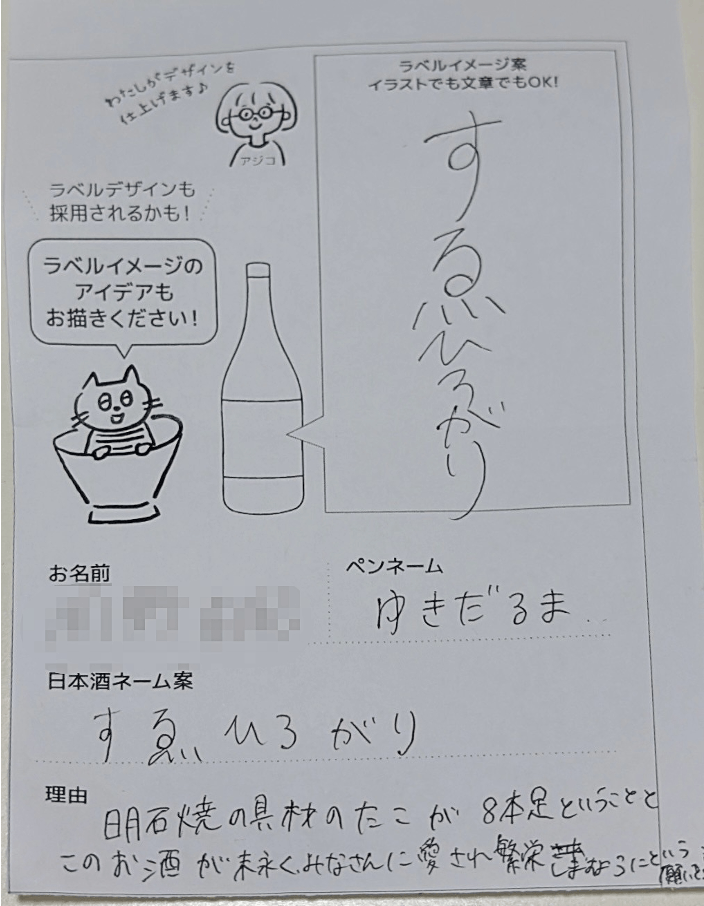 わたしがデザインを
仕上げます♪
アジコ
ラベルデザインも
採用されるかも!
ラベルイメージの
アイデアも
お描きください!
ラベルイメージ案
イラストでも文章でもOK!
すゑひろがり
お名前
ペンネーム
ゆきだるま
日本酒ネーム案
すゑひろがり
理由
明石焼の具材のたこが8本足ということと
このお酒が末永くみなさんに愛され繁栄しますようにという
願いと